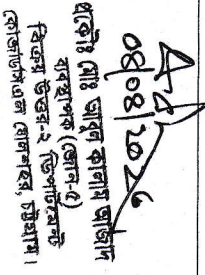 08/08/2026
প্রকৌঃ মোঃ আবুল কালাম আজাদ
ব্যবস্থাপক (জোন-৫)
বিক্রয় উত্তর-২ ডিপার্টমেন্ট
কেজিডিসিএল ষোলশহর, চট্টগ্রাম।